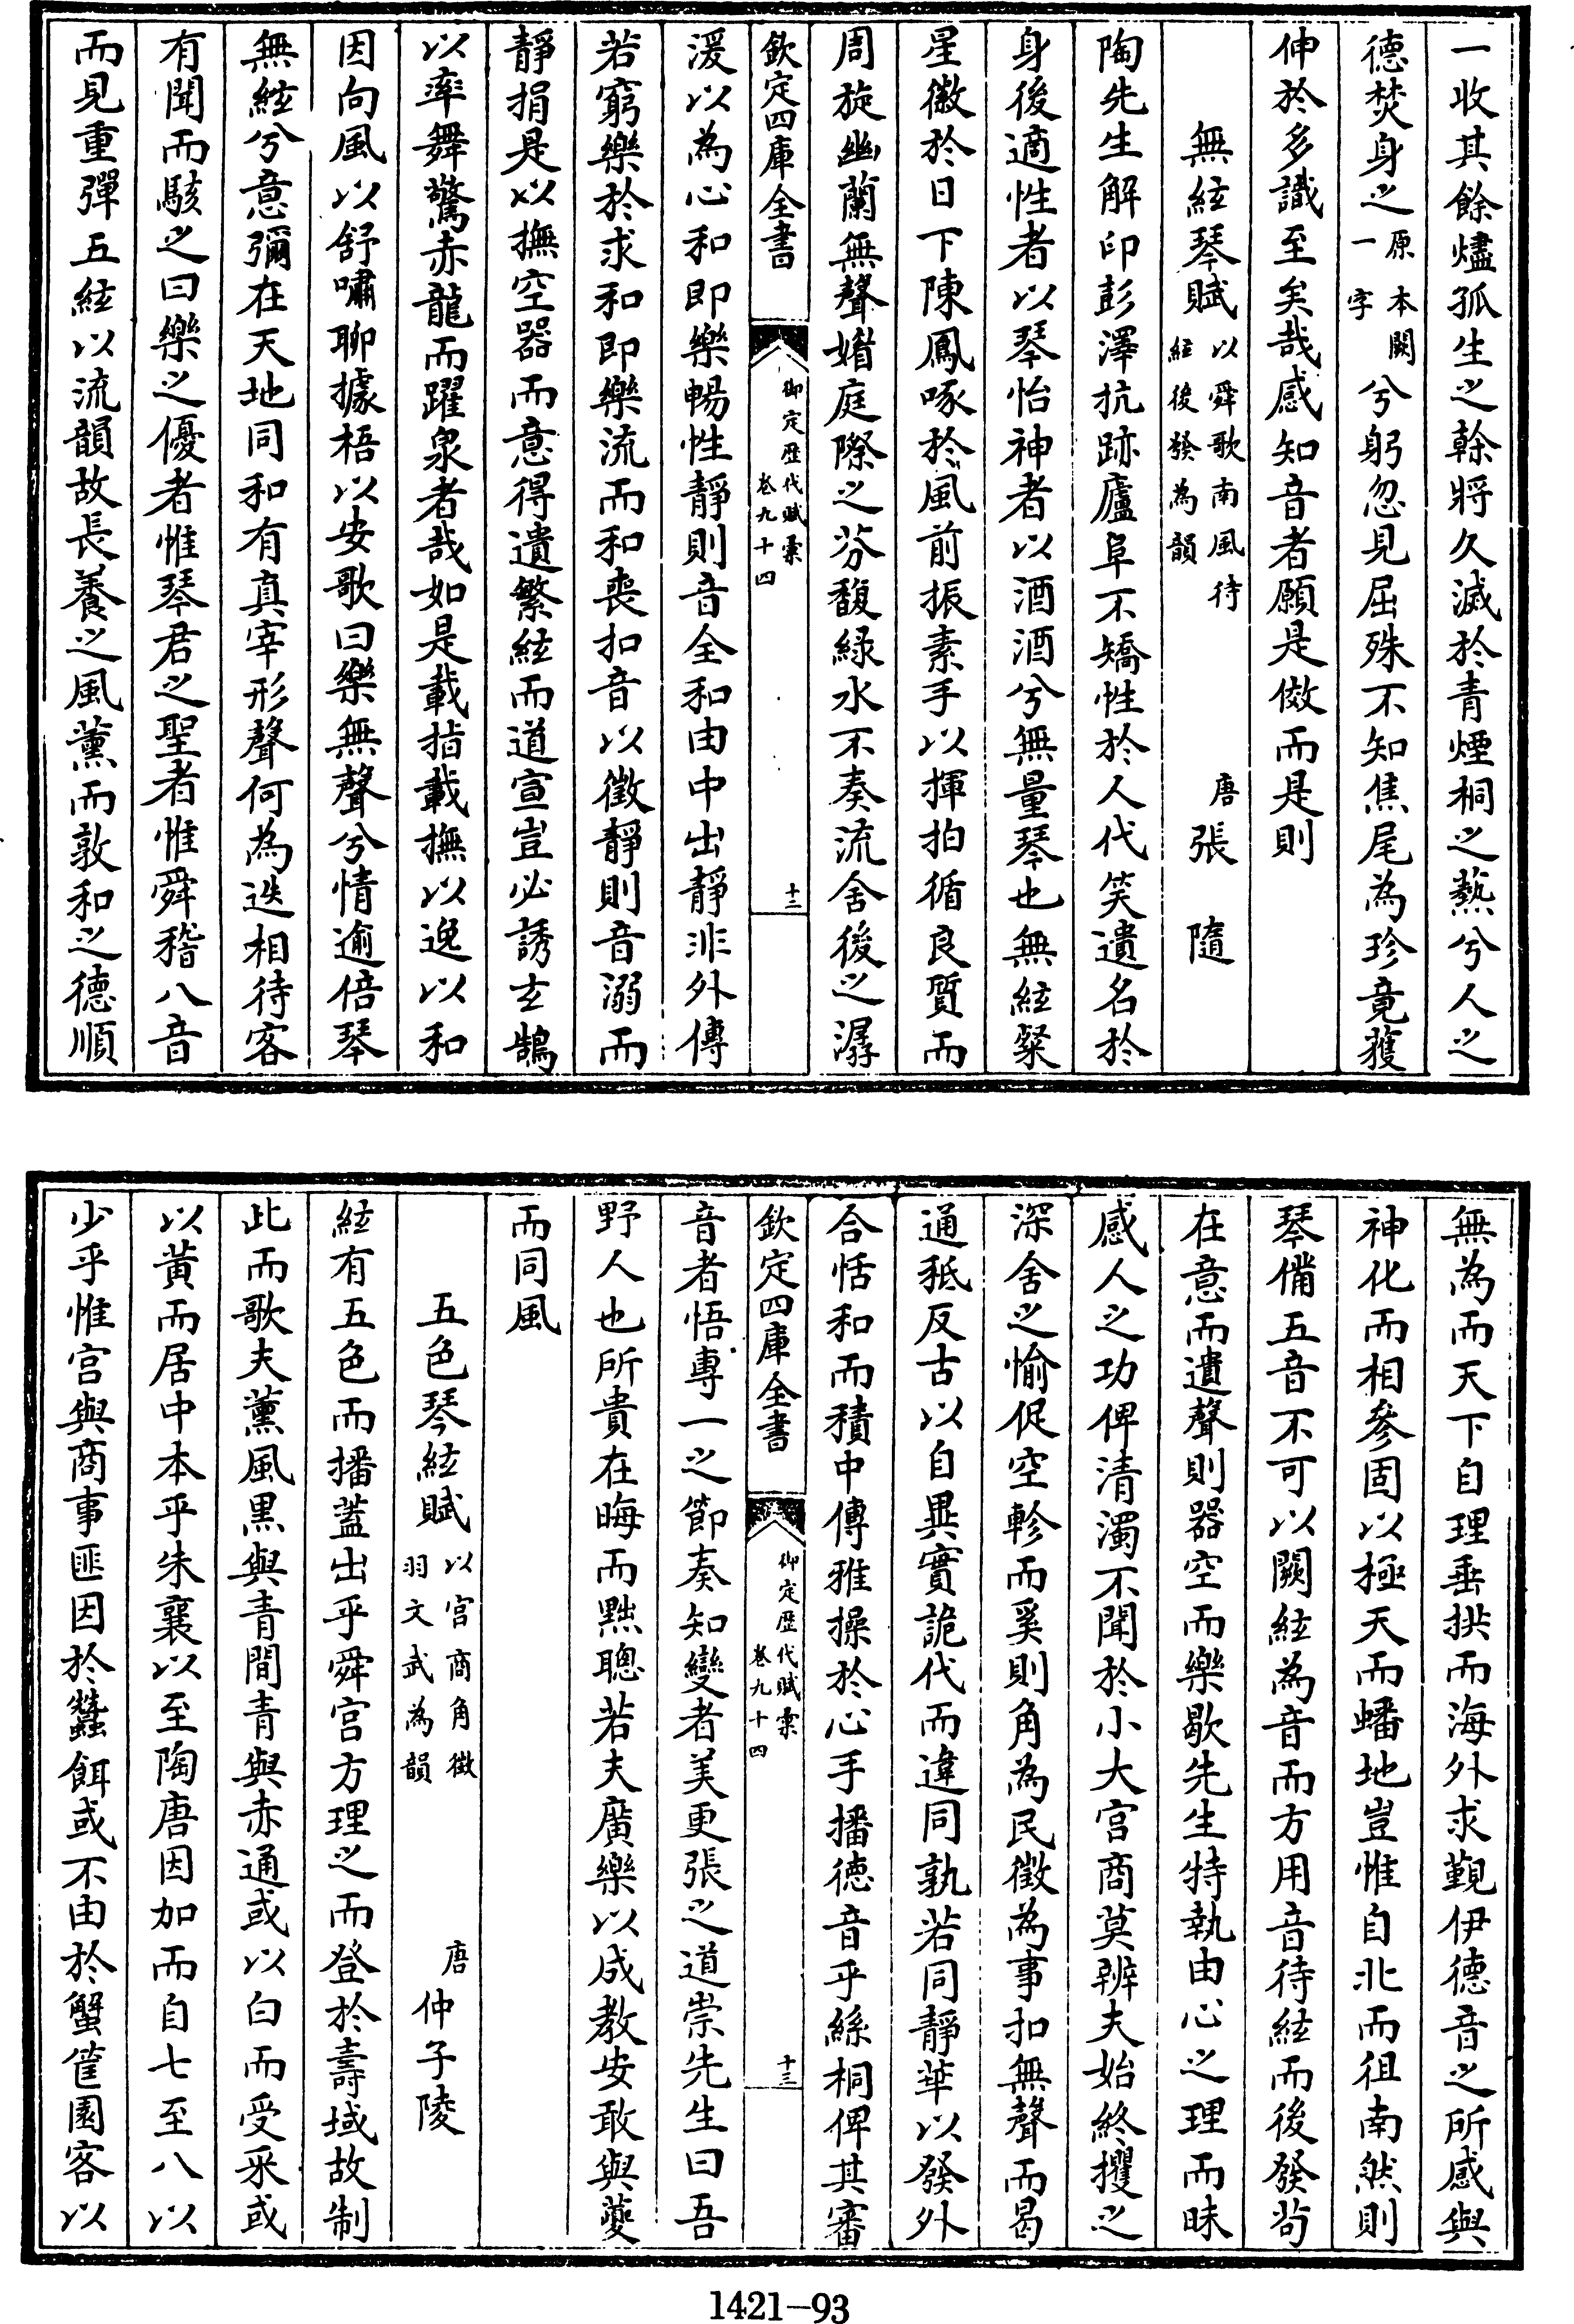 一收其餘燼孤生之榦將久滅於青煙桐之熱兮人之
德焚身之原本闕一字兮躬忽見屈殊不知焦尾為珍竟獲
伸於多識至矣哉感知音者願是倣而是則
無絃琴賦以舜歌南風待絃後發為韻 唐張隨
陶先生解印彭澤抗跡廬阜不矯性於人代笑遺名於
身後適性者以琴怡神者以酒酒兮無量琴也無絃粲
星徽於日下陳鳳啄於風前振素手以揮拍循良質而
周旋幽蘭無聲媚庭際之芬馥綠水不奏流舍後之潺
欽定四庫全書 御定歷代賦彙卷九十四 十二
湲以為心和即樂暢性靜則音全和由中出靜非外傳
若窮樂於求和即樂流而和喪扣音以徵靜則音溺而
靜捐是以撫空器而意得遺繁絃而道宣豈必誘玄鶴
以率舞驚赤龍而躍泉者哉如是載指載撫以逸以和
因向風以舒嘯聊據梧以安歌曰樂無聲兮情逾倍琴
無絃兮意彌在天地同和有真宰形聲何為迭相待客
有聞而駭之曰樂之優者惟琴君之聖者惟舜稽八音
而見重彈五絃以流韻故長養之風薰而敦和之德順
無為而天下自理垂拱而海外求覲伊德音之所感與
神化而相參固以極天而蟠地豈惟自北而徂南然則
琴備五音不可以闕絃為音而方用音待絃而後發茍
在意而遺聲則器空而樂歇先生特執由心之理而昧
感人之功俾清濁不聞於小大宮商莫辨夫始終攫之
深舍之愉促空軫而奚則角為民徵為事扣無聲而曷
通秖反古以自異實詭代而違同孰若同靜華以發外
合恬和而積中傳雅操於心手播德音乎絲桐俾其審
欽定四庫全書 御定歷代賦彙卷九十四 十三
音者悟專一之節奏知變者美更張之道崇先生曰吾
野人也所貴在晦而黜聰若夫廣樂以成教安敢與夔
而同風
五色琴絃賦以宮商角徵羽文武為韻 唐仲子陵
絃有五色而播蓋出乎舜宮方理之而登於壽域故制
此而歌夫薰風黑與青間青與赤通或以白而受采或
以黃而居中本乎朱襄以至陶唐因加而自七至八以
少乎惟宮與商事匪因於蠶餌或不由於蟹筐園客以
1421-93